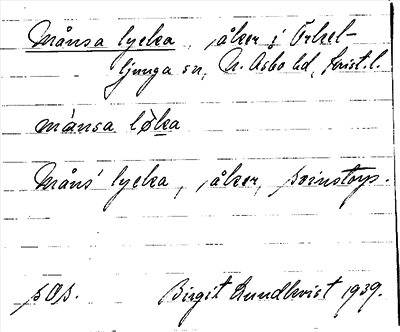 Månsa lycka, åker i Örkel-
ljunga sn, N. Åsbo hd, Krist. l.
månsa løka
Måns' lycka, åker,
sOs. Birgit Lundkvist 1939.